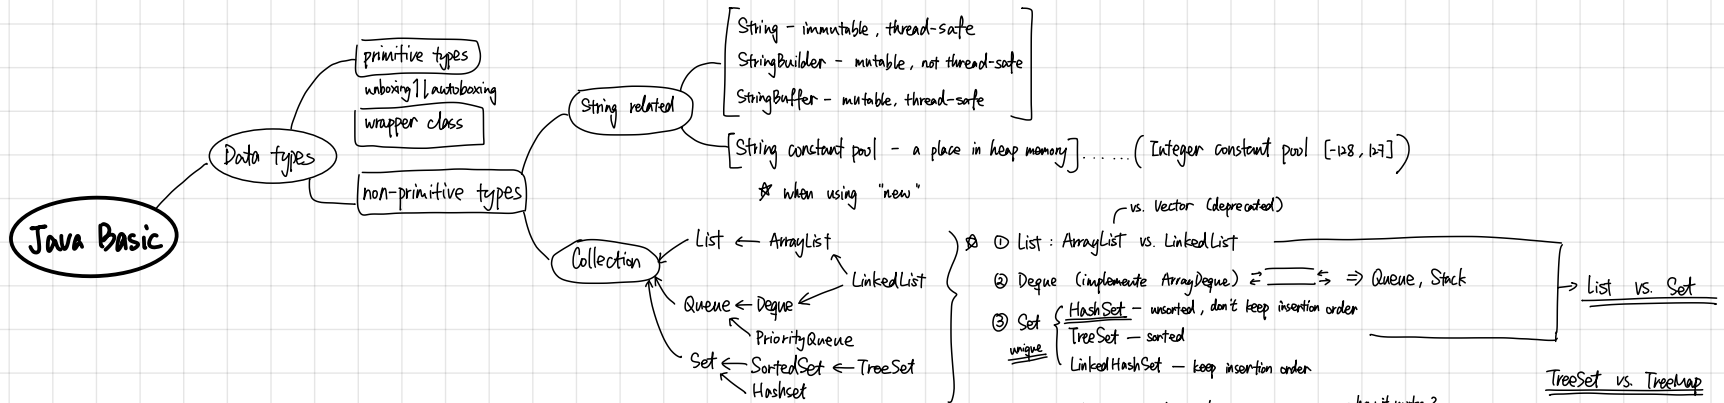 Java Basic
Data types
primitive types
unboxing ↑↓ autoboxing
wrapper class
non-primitive types
String related
String - immutable, thread-safe
StringBuilder - mutable, not thread-safe
StringBuffer - mutable, thread-safe
[String constant pool - a place in heap memory] ...... (Integer constant pool [-128, 127])
☆ when using "new"
Collection
List ← ArrayList
LinkedList
Queue ← Deque
PriorityQueue
Set ← SortedSet ← TreeSet
Hashset
vs. Vector (deprecated)
☆ ① List : ArrayList vs. LinkedList
② Deque (implemente ArrayDeque) ⇄ ⇄ ⇒ Queue, Stack
③ Set
unique
HashSet - unsorted, don't keep insertion order
TreeSet - sorted
LinkedHashSet - keep insertion order
→ List vs. Set
TreeSet vs. TreeMap